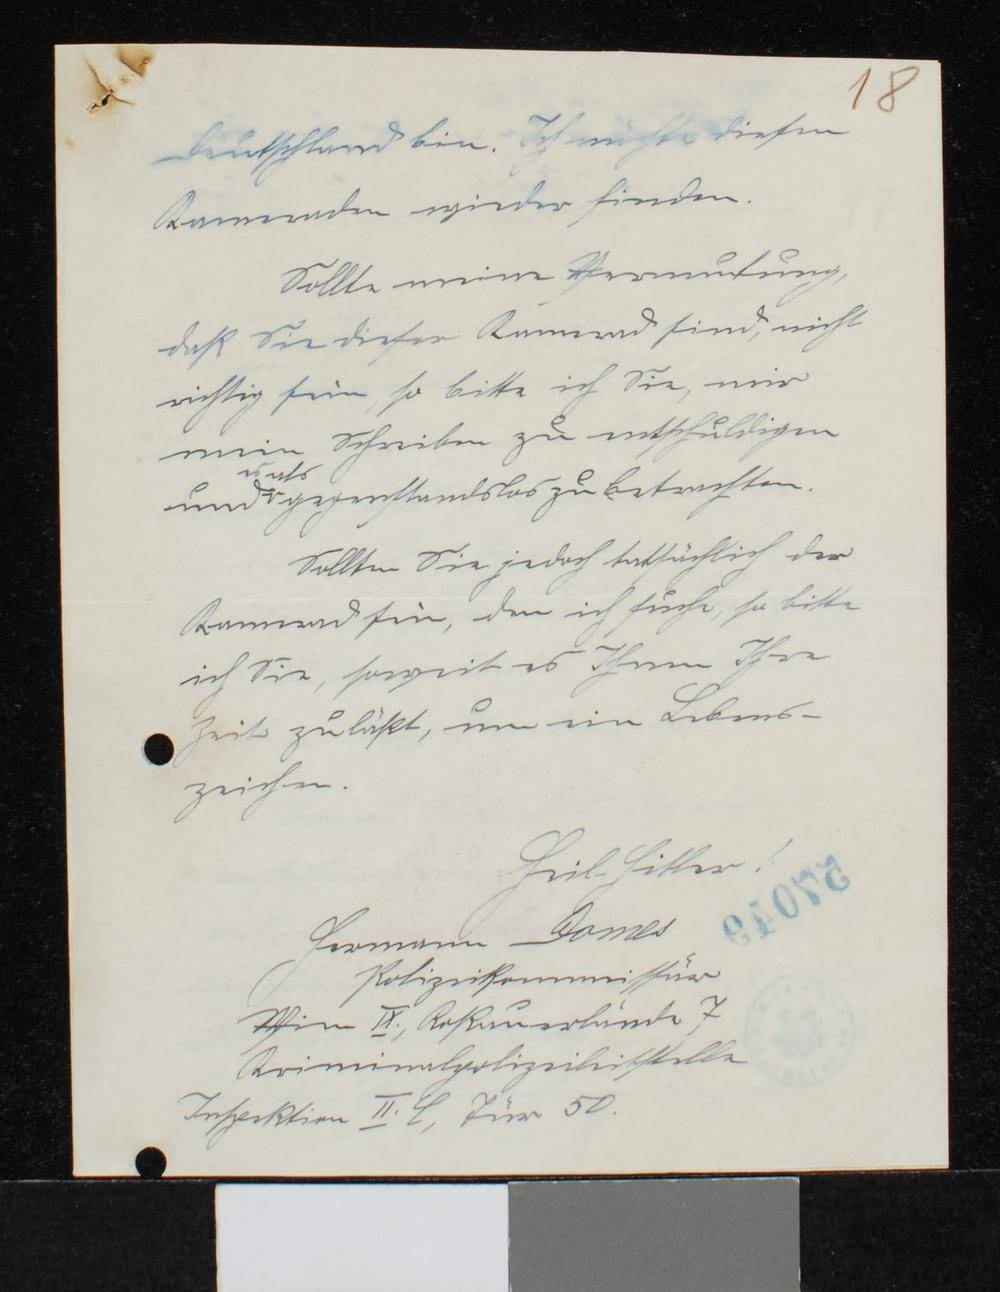 18
Deutschland bin. Ich möchte diesen
Kameraden wieder finden.
Sollte meine Vermutung,
daß Sie dieser Kamerad sind, nicht
richtig sein, so bitte ich Sie, mir
mein Schreiben zu entschuldigen
es als
und gegenstandslos zu betrachten.
Sollten Sie jedoch tatsächlich der
Kamerad sein, den ich suche, so bitte
ich Sie, soweit es Ihnen Ihre
Zeit zuläßt, um ein Lebens-
zeichen.
Heil Hitler!
57049
Hermann Domes
Polizeikommissär
Wien IX., Roßauerlände 7
Kriminalpolizeileitstelle
Inspektion II. C, Tür 50.